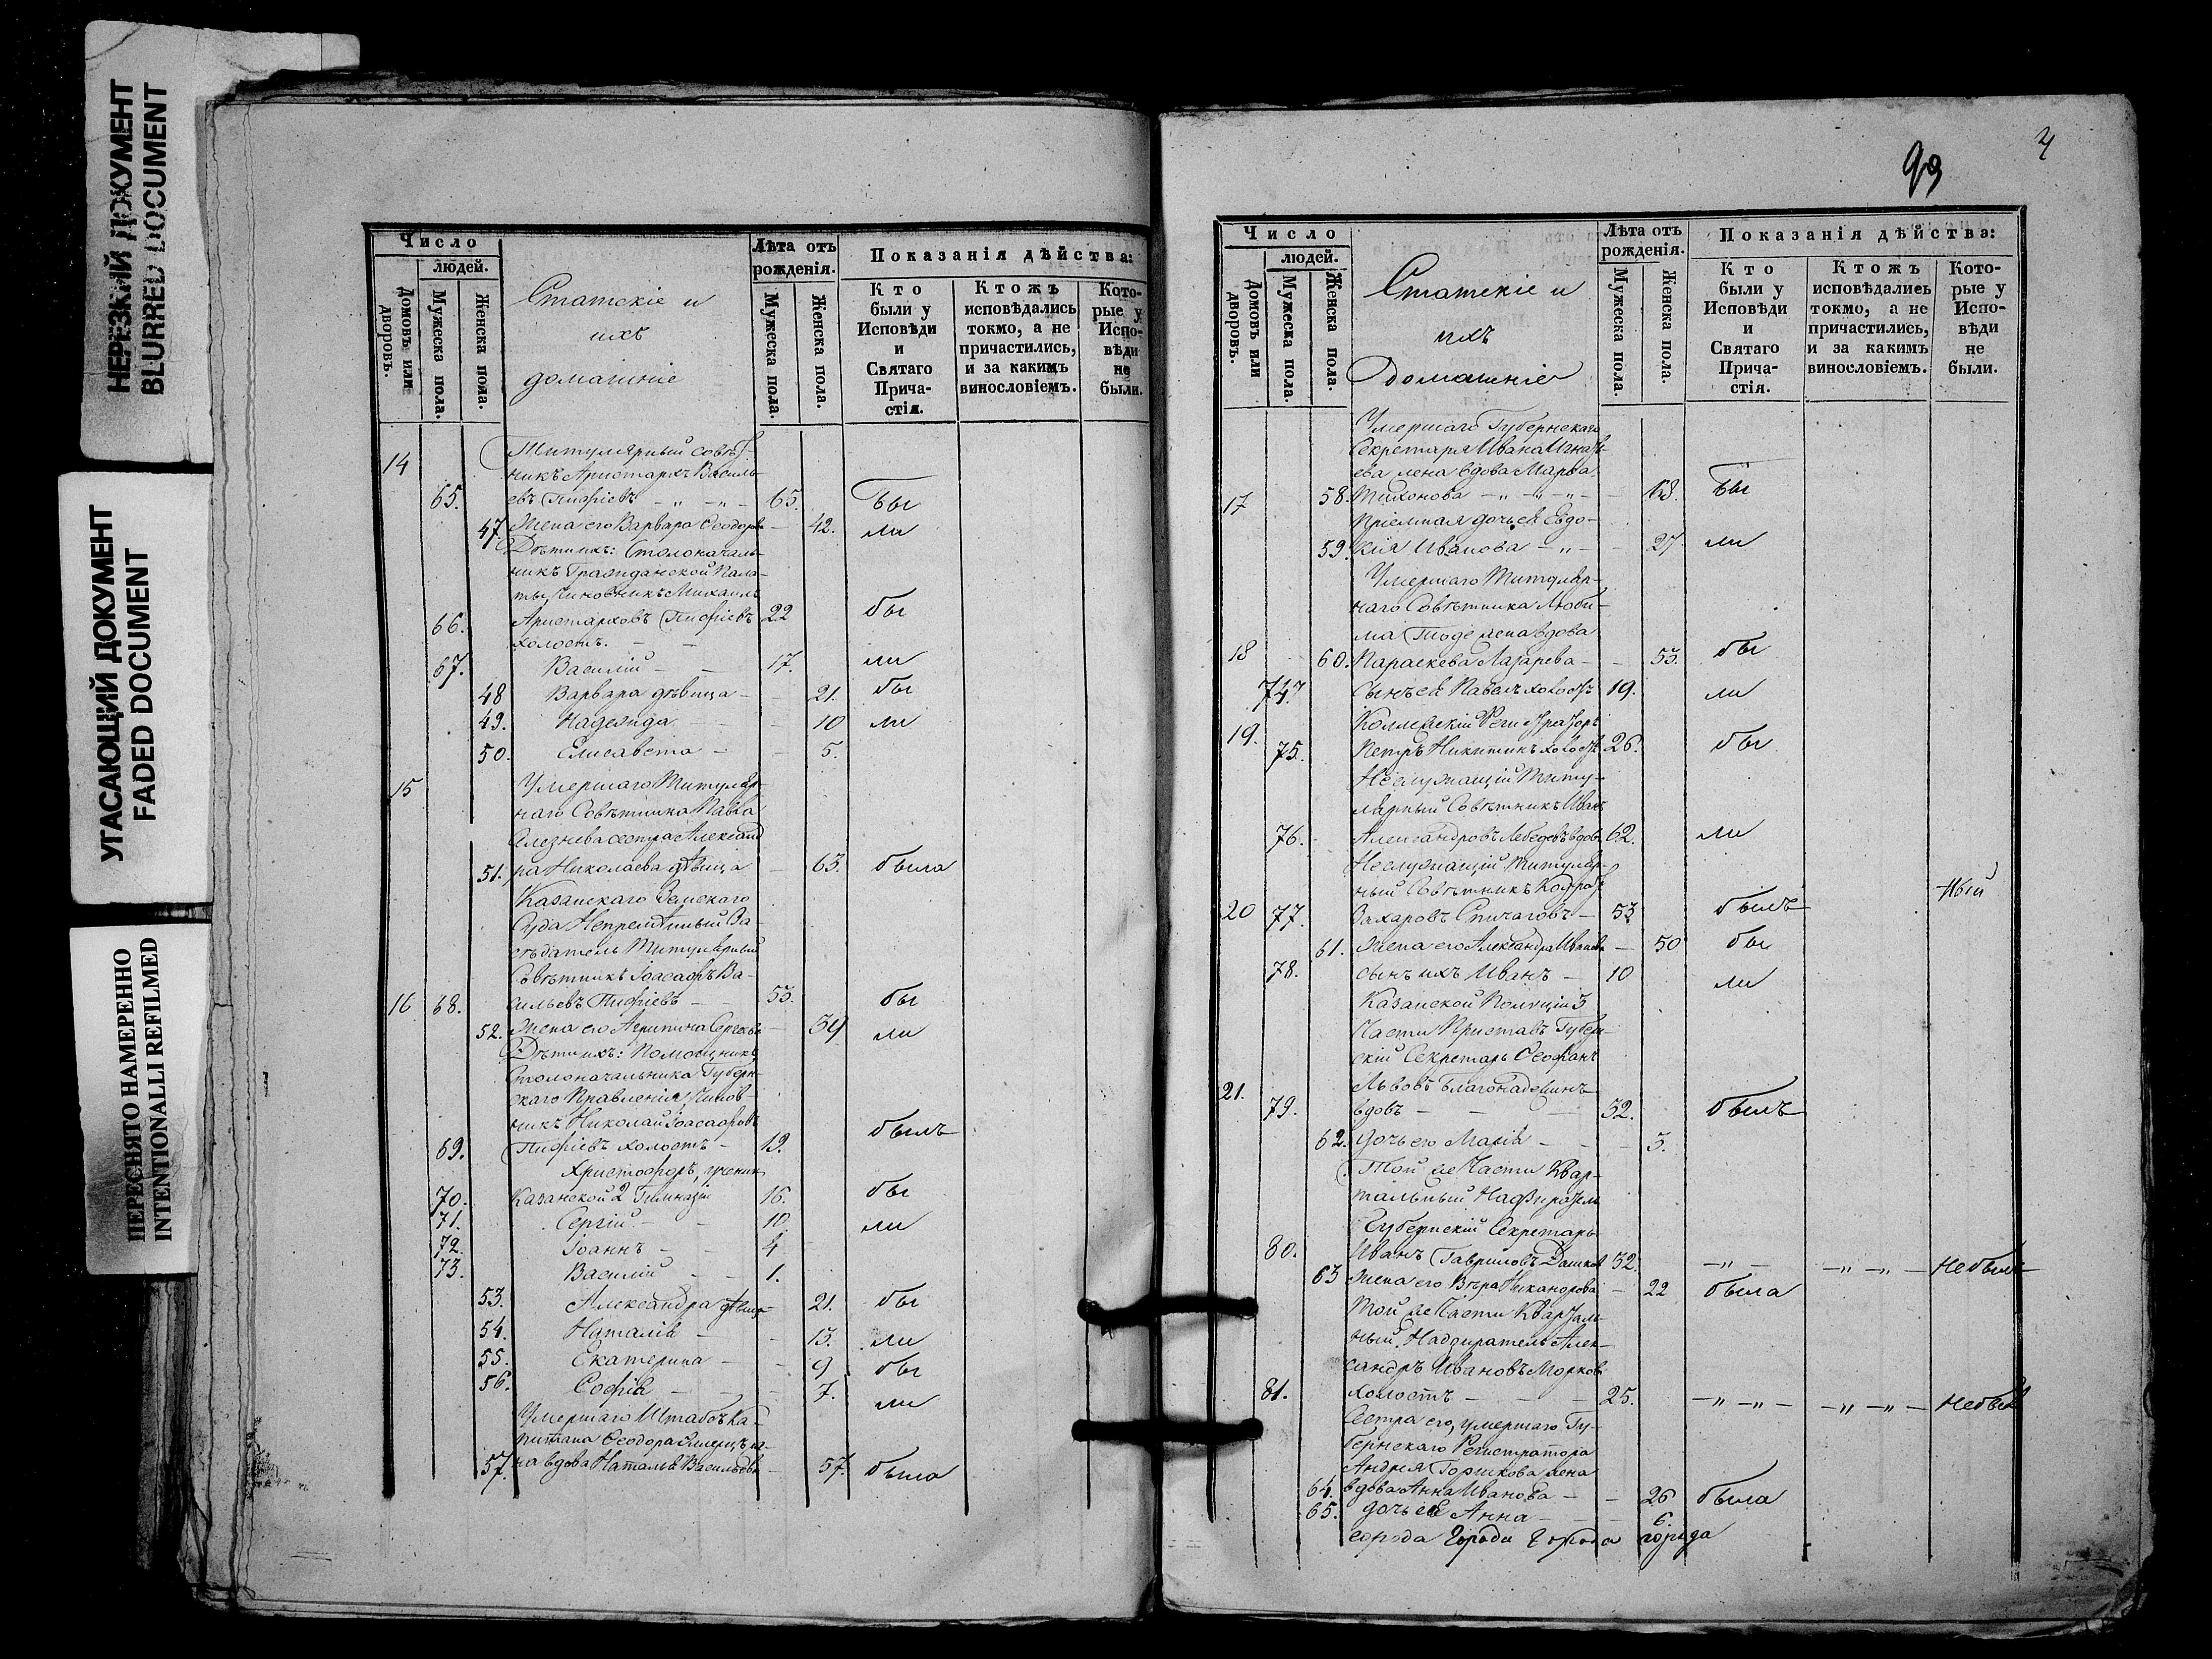 НЕРЕЗКИЙ ДОКУМЕНТ
BLURRED DOCUMENT
УГАСАЮЩИЙ ДОКУМЕНТ
FADED DOCUMENT
ПЕРЕСНЯТО НАМЕРЕННО
INTENTIONALLI REFILMED
Число
людей.
Домовъ или дворовъ.
Мужеска пола.
Женска пола.
Статскіе и
ихъ
домашніе
Лѣта отъ рожденія.
Мужеска пола.
Женска пола.
Показанія дѣйства:
Кто были у Исповѣди и Святаго Прича-стія.
Ктожъ исповѣдались токмо, а не причастились, и за какимъ винословіемъ.
Кото-рые у Испо-вѣди не были.
14 Титулярный совѣт
никъ Аристархъ Василь-
65. евъ Пифіевъ 65. бы
47. Жена его Варвара Ѳеодоров 42. ли
Дѣти ихъ: Столоначаль-
никъ Гражданской Пала-
ты Чиновникъ Михаилъ
66. Аристарховъ Пифіевъ 22 бы
холостъ.
67. Василій 17. ли
48 Варвара дѣвица 21. бы
49. Надежда 10 ли
50. Елисавета 5.
15 Умершаго Титуляр
наго Совѣтника Павла
сестра Александ
51. ра Николаева дѣвица 63. была
Казанскаго Земскаго
Суда Непремѣнный За-
сѣдатель Титулярный
Совѣтникъ Іоасафъ Ва-
16 68. сильевъ Пифіевъ 53. бы
52. Жена его Агрипина Сергеев 39 ли
Дѣти ихъ: Помощникъ
Столоначальника Губерн-
скаго Правленія Чинов-
никъ Николай Іоасафовъ
69. Пифіевъ холостъ 19. былъ
Христофоръ, ученик
70. Казанской 2 Гимназіи 16. бы
71. Сергій 10. ли
72. Іоаннъ 4
73. Василій 1.
53. Александра дѣвица 21. бы
54. Наталія 13. ли
55. Екатерина 9 бы
56. Софія 7. ли
Умершаго Штабсъ Ка-
питана Ѳеодора же-
57. на вдова Наталья Васильева 57. была
99
4
Число
людей.
Домовъ или дворовъ.
Мужеска пола.
Женска пола.
Статскіе и
ихъ
Домашніе
Лѣта отъ рожденія.
Мужеска пола.
Женска пола.
Показанія дѣйства:
Кто были у Исповѣди и Святаго Прича-стія.
Ктожъ исповѣдались токмо, а не причастились, и за какимъ винословіемъ.
Кото-рые у Испо-вѣди не были.
Умершаго Губернскаго
Секретаря Ивана Игнать
ева жена вдова Марѳа
17 58. Тихонова 68. бы
Пріемная дочь ея Евдо-
59. кія Иванова 27 ли
Умершаго Титуляр-
наго Совѣтника Люби-
ма жена вдова
18 60. Параскева Лазарева 53. бы
74. Сынъ ея Павелъ холостъ 19. ли
Коллежскій Регистраторъ
19. 75. Петръ Никитинъ холостъ 26. бы
Неслужащій Титу-
лярный Совѣтникъ Иванъ
76. Александровъ Лебедевъ вдовъ 62. ли
Неслужащій Титуляр-
ный Совѣтникъ
20 77. Захаровъ Спичаговъ 53 былъ
61. Жена его Александра Иванова 50 бы
78. сынъ ихъ Иванъ 10 ли
Казанской Полиціи 3
Части Приставъ Губерн-
скій Секретарь Ѳеофанъ
21. Львовъ Благонадеждинъ
79. вдовъ 52. былъ
62. Дочь его Марія 3.
Той же Части Квар-
тальный Надзиратель
Губернскій Секретарь
80. Иванъ Гавриловъ Дашков 32. не былъ
63 Жена его Вѣра Никанорова 22 была
Той же Части Кварталь
ный Надзиратель Алек-
сандръ Ивановъ Морков
81. холостъ 25. не былъ
Сестра его, умершаго Гу-
бернскаго Регистратора
Андрея Горшкова жена
64. вдова Анна Иванова 26 была
65. дочь ея Анна 6.
города города города города